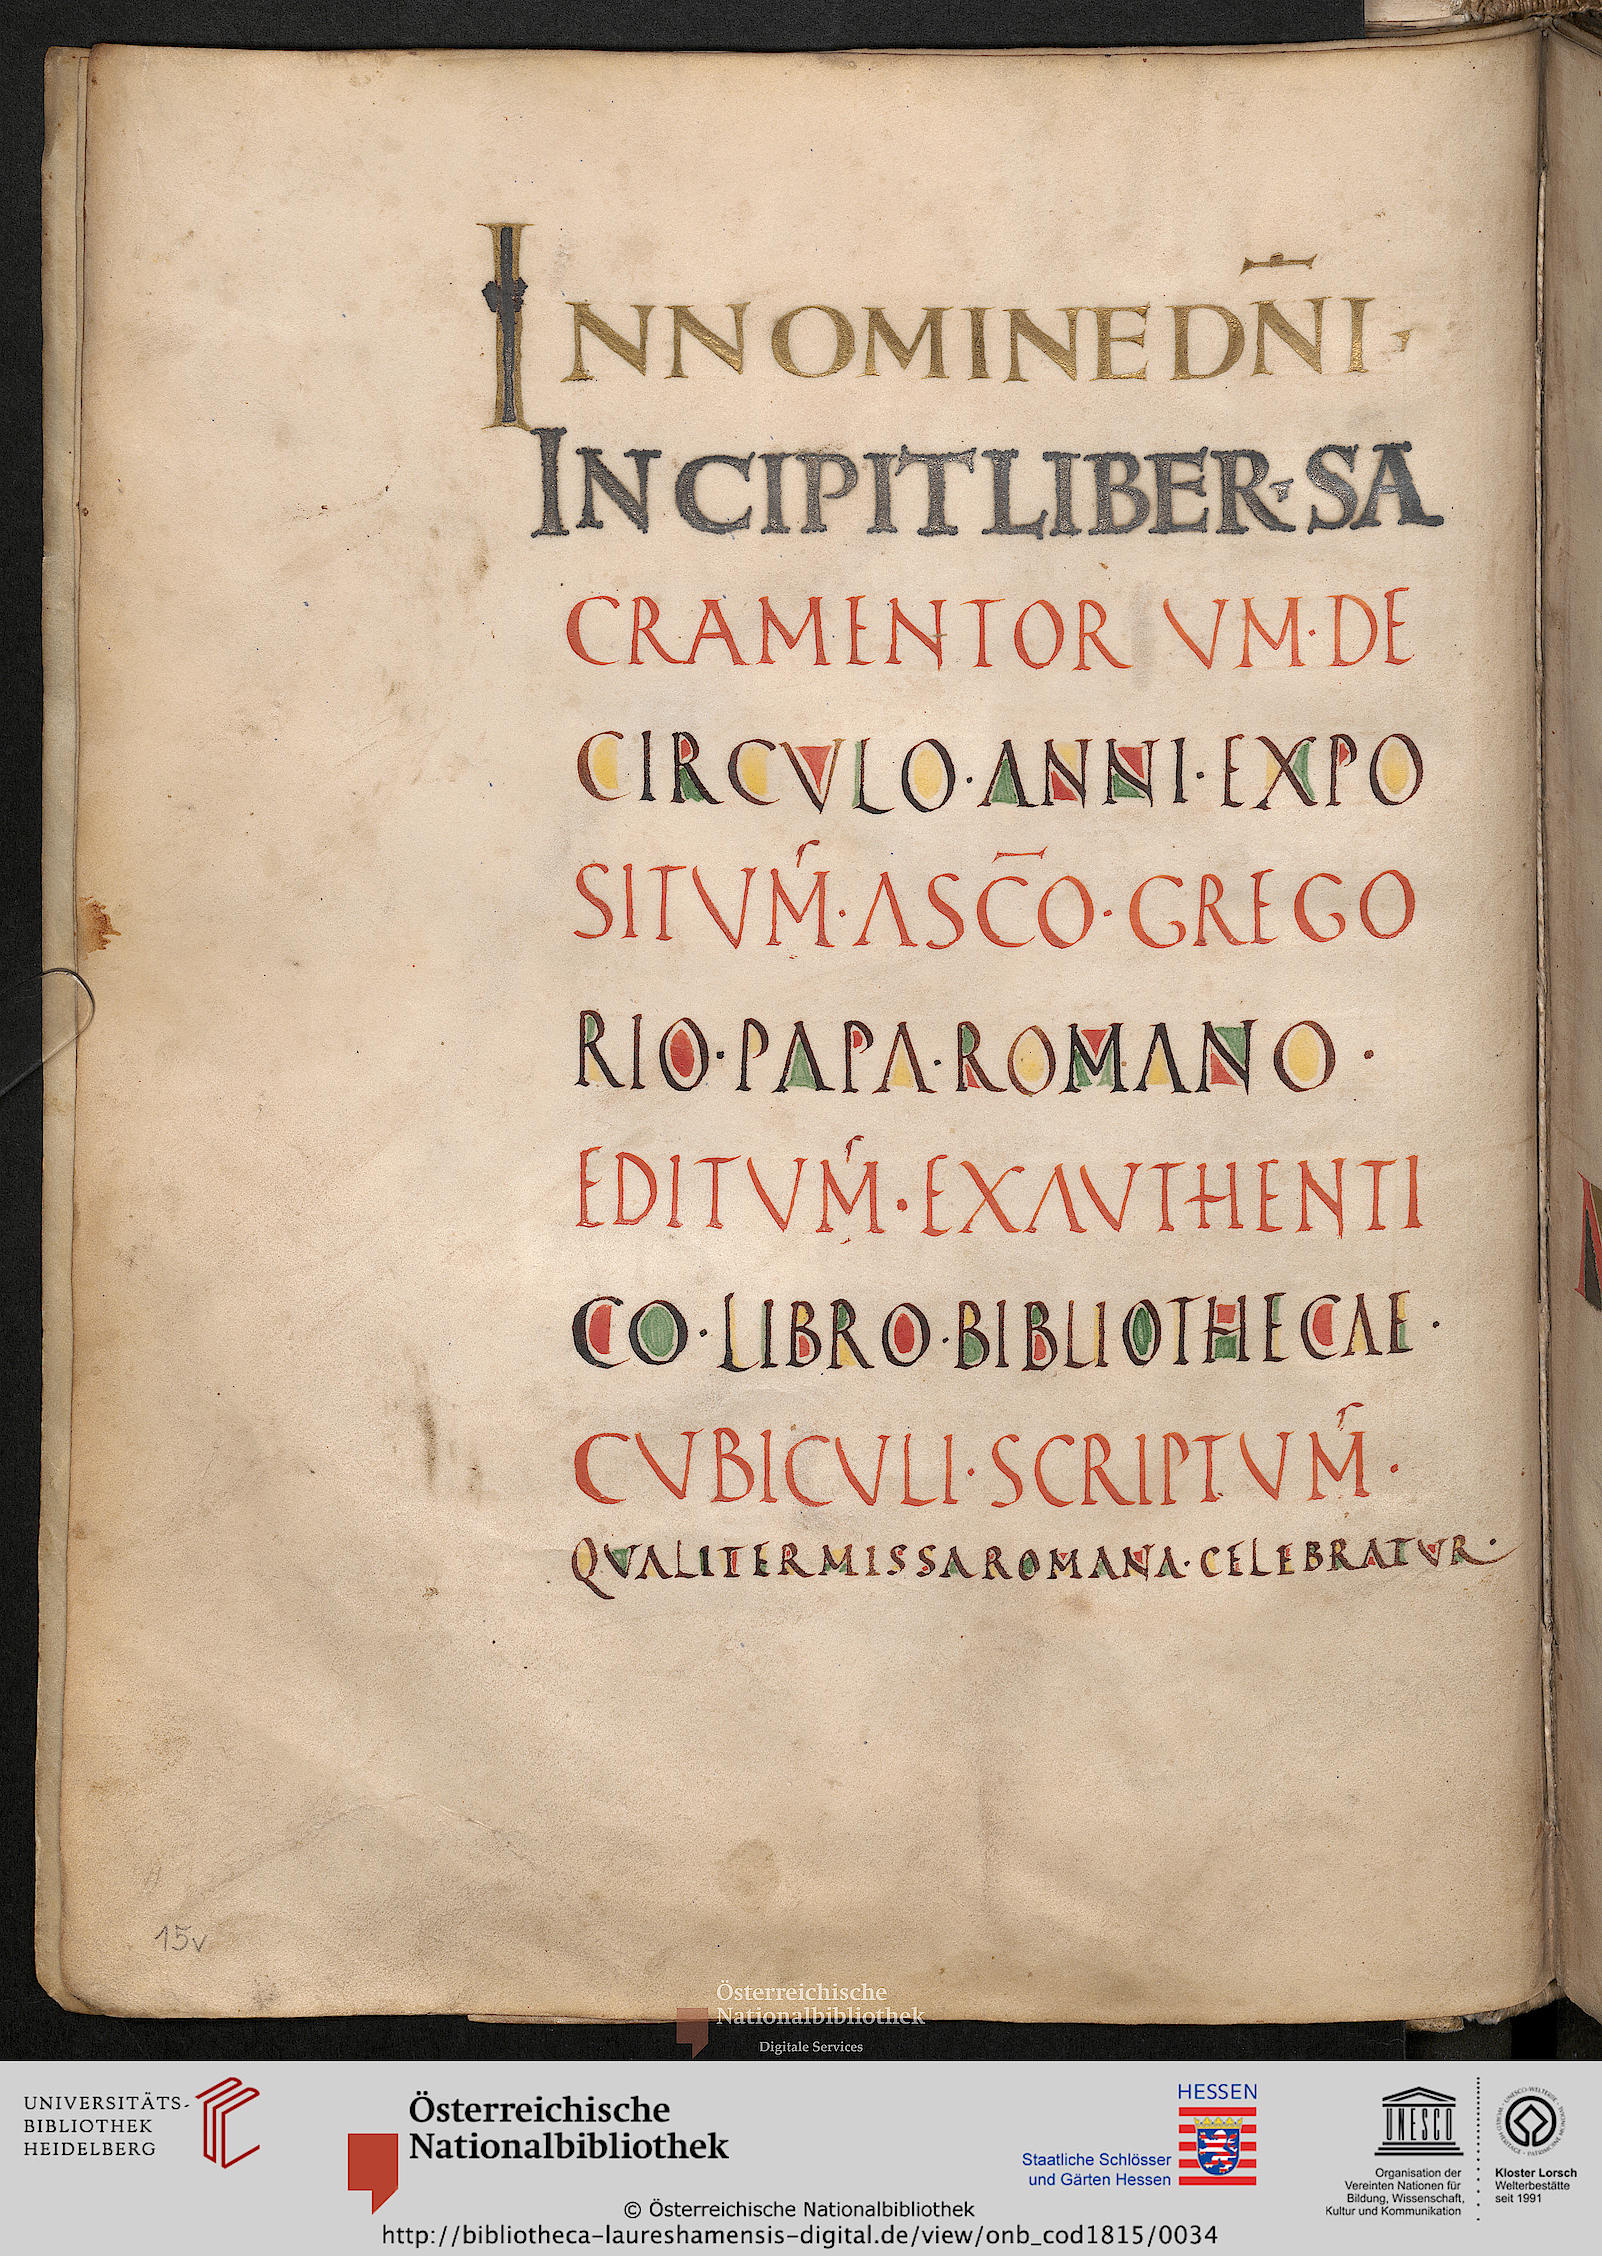 INNOMINEDN̄I,
INCIPITLIBER·SA
CRAMENTOR VM·DE
CIRCVLO·ANNI·EXPO
SITVM·ASC̄O·GREGO
RIO·PAPA·ROMANO·
EDITVM·EXAVTHENTI
CO·LIBRO·BIBLIOTHECAE·
CVBICVLI·SCRIPTVM·
QVALITERMISSAROMANA·CELEBRATVR·
15v
Österreichische
Nationalbibliothek
Digitale Services
UNIVERSITÄTS-
BIBLIOTHEK
HEIDELBERG
Österreichische
Nationalbibliothek
HESSEN
Staatliche Schlösser
und Gärten Hessen
UNESCO
Organisation der
Vereinten Nationen für
Bildung, Wissenschaft,
Kultur und Kommunikation
Kloster Lorsch
Welterbestätte
seit 1991
© Österreichische Nationalbibliothek
http://bibliotheca-laureshamensis-digital.de/view/onb_cod1815/0034